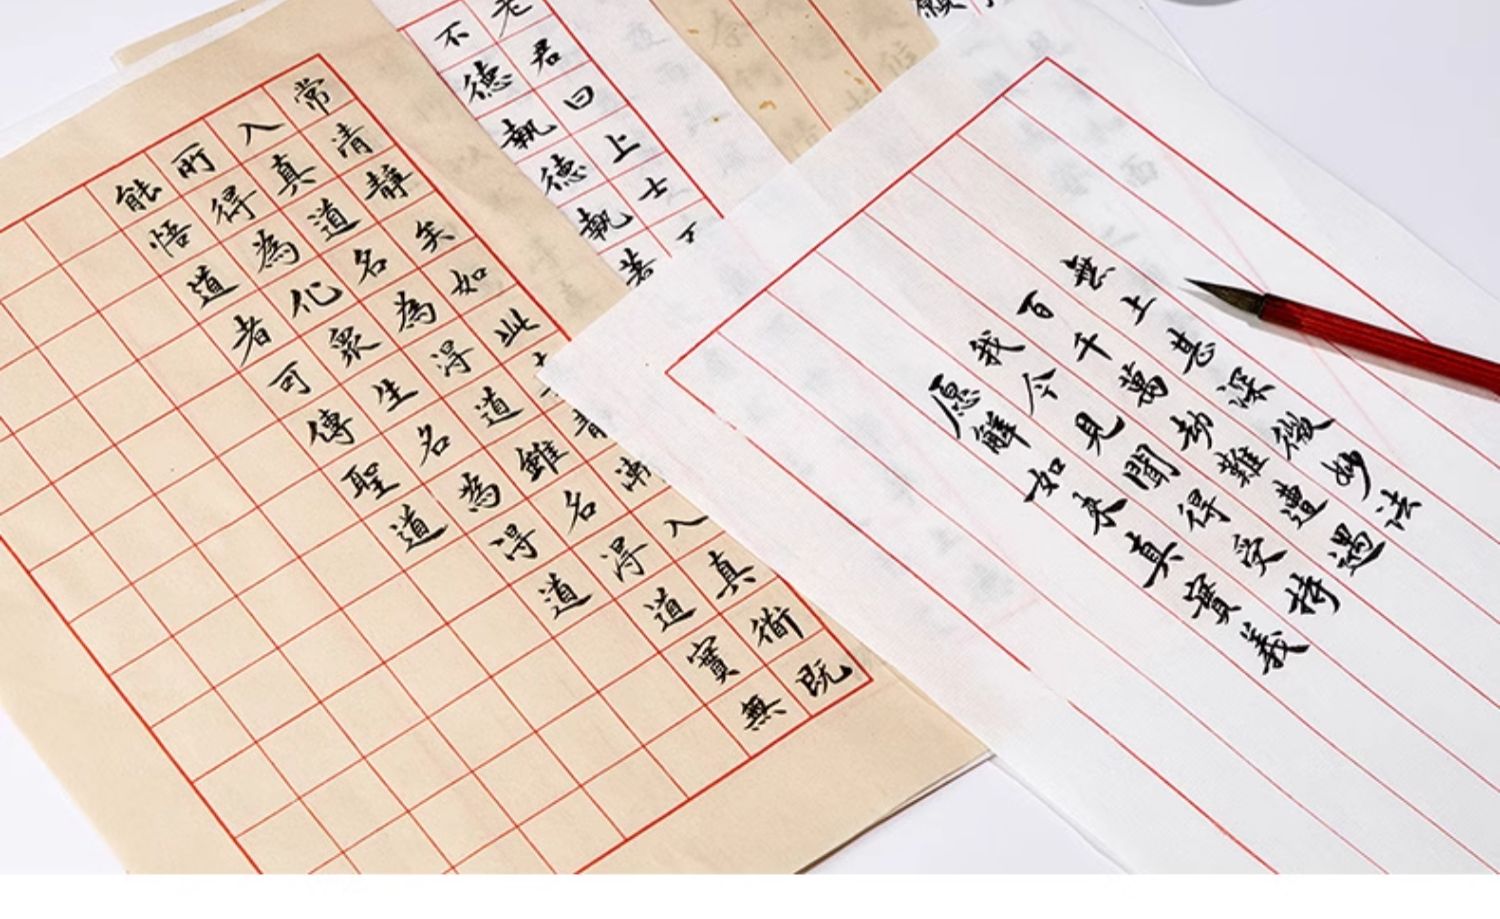 常清靜矣如此漸入真衜既
入真道名為得道雖名得道實無
所得為化衆生名為得道
能悟道者可傳聖道
老君曰上士
不德執德執著
無上甚深微妙法
百千萬劫難遭遇
我今見聞得受持
愿解如來真實義